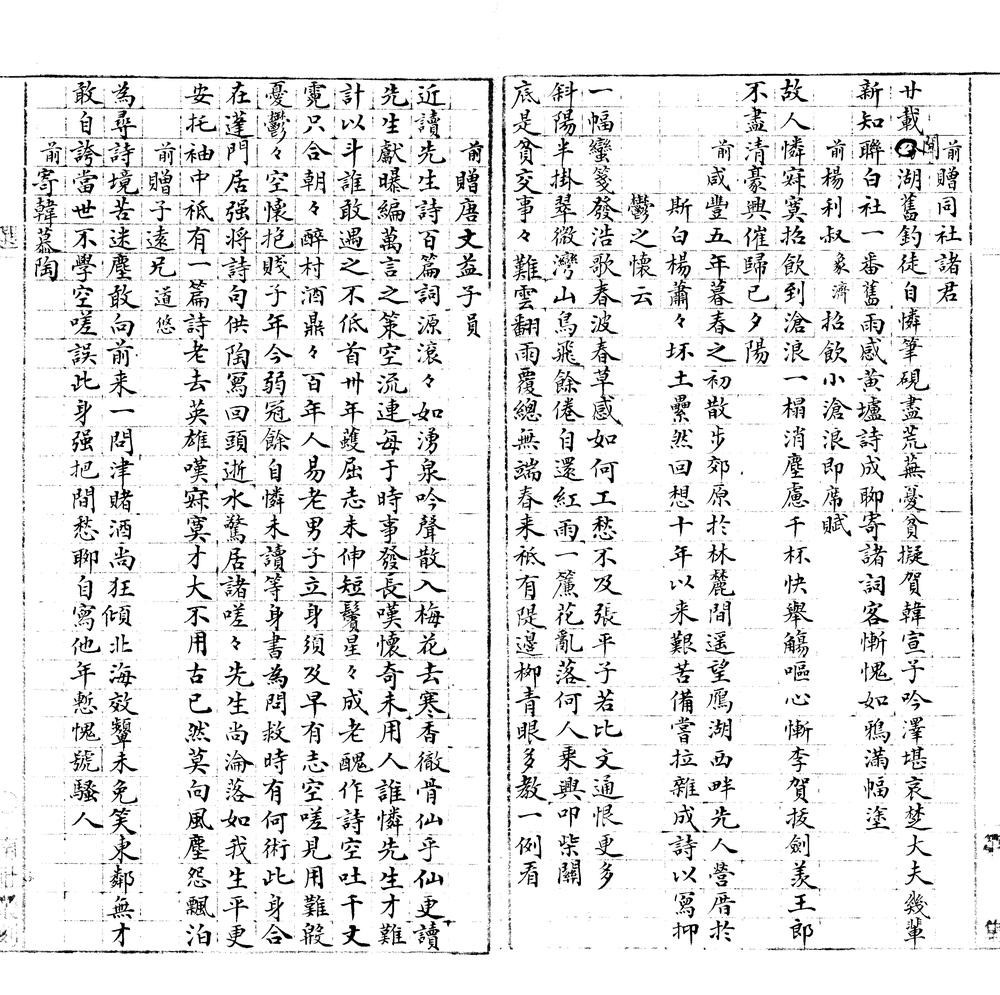 前贈同社諸君
廿載間湖舊釣徒自憐筆硯盡荒蕪憂貧擬賀韓宣子吟澤堪哀楚大夫幾輩
新知聯白社一番舊雨感黃壚詩成聊寄諸詞客慚愧如鴉滿幅塗
前楊利叔象濟招飲小滄浪即席賦
故人憐寂寞招飲到滄浪一榻消塵慮千杯快舉觴嘔心慚李賀拔劍羨王郎
不盡清豪興催歸已夕陽
前咸豐五年暮春之初散步郊原於林麓間遥望鴈湖西畔先人營厝於
斯白楊蕭々坏土纍然回想十年以来艱苦備嘗拉雜成詩以寫抑
鬱之懷云
一幅蠻箋發浩歌春波春草感如何工愁不及張平子若比文通恨更多
斜陽半掛翠微灣山鳥飛餘倦自還紅雨一簾花亂落何人乘興叩柴關
底是貧交事々難雲翻雨覆總無端春来祗有隄邊柳青眼多教一例看
前贈唐文益子員
近讀先生詩百篇詞源滚々如湧泉吟聲散入梅花去寒香徹骨仙乎仙更讀
先生獻曝編萬言之策空流連每于時事發長嘆懷奇未用人誰憐先生才難
計以斗誰敢遇之不低首卅年蠖屈志未伸短鬢星々成老醜作詩空吐千丈
霓只合朝々醉村酒鼎々百年人易老男子立身須及早有志空嗟見用難般
憂鬱々空懷抱賤子年今弱冠餘自憐未讀等身書為問救時有何術此身合
在蓬門居强将詩句供陶寫回頭逝水驚居諸嗟々先生尚淪落如我生平更
安托袖中祗有一篇詩老去英雄嘆寂寞才大不用古已然莫向風塵怨飄泊
前贈子遠兄道悠
為尋詩境苦迷塵敢向前来一問津賭酒尚狂傾北海效顰未免笑東鄰無才
敢自誇當世不學空嗟誤此身强把閒愁聊自寫他年慙愧號騷人
前寄韓菾陶